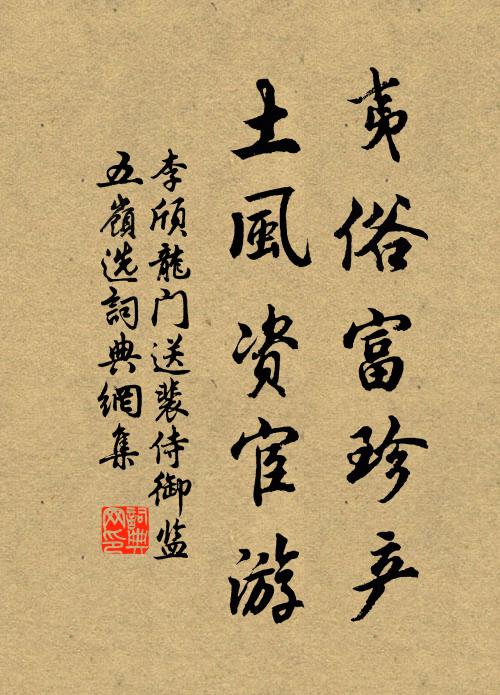 夷俗富珍产
土風资宦游
李颀龍门送裴侍御监
五嶺选詞典網集
詞典
网印